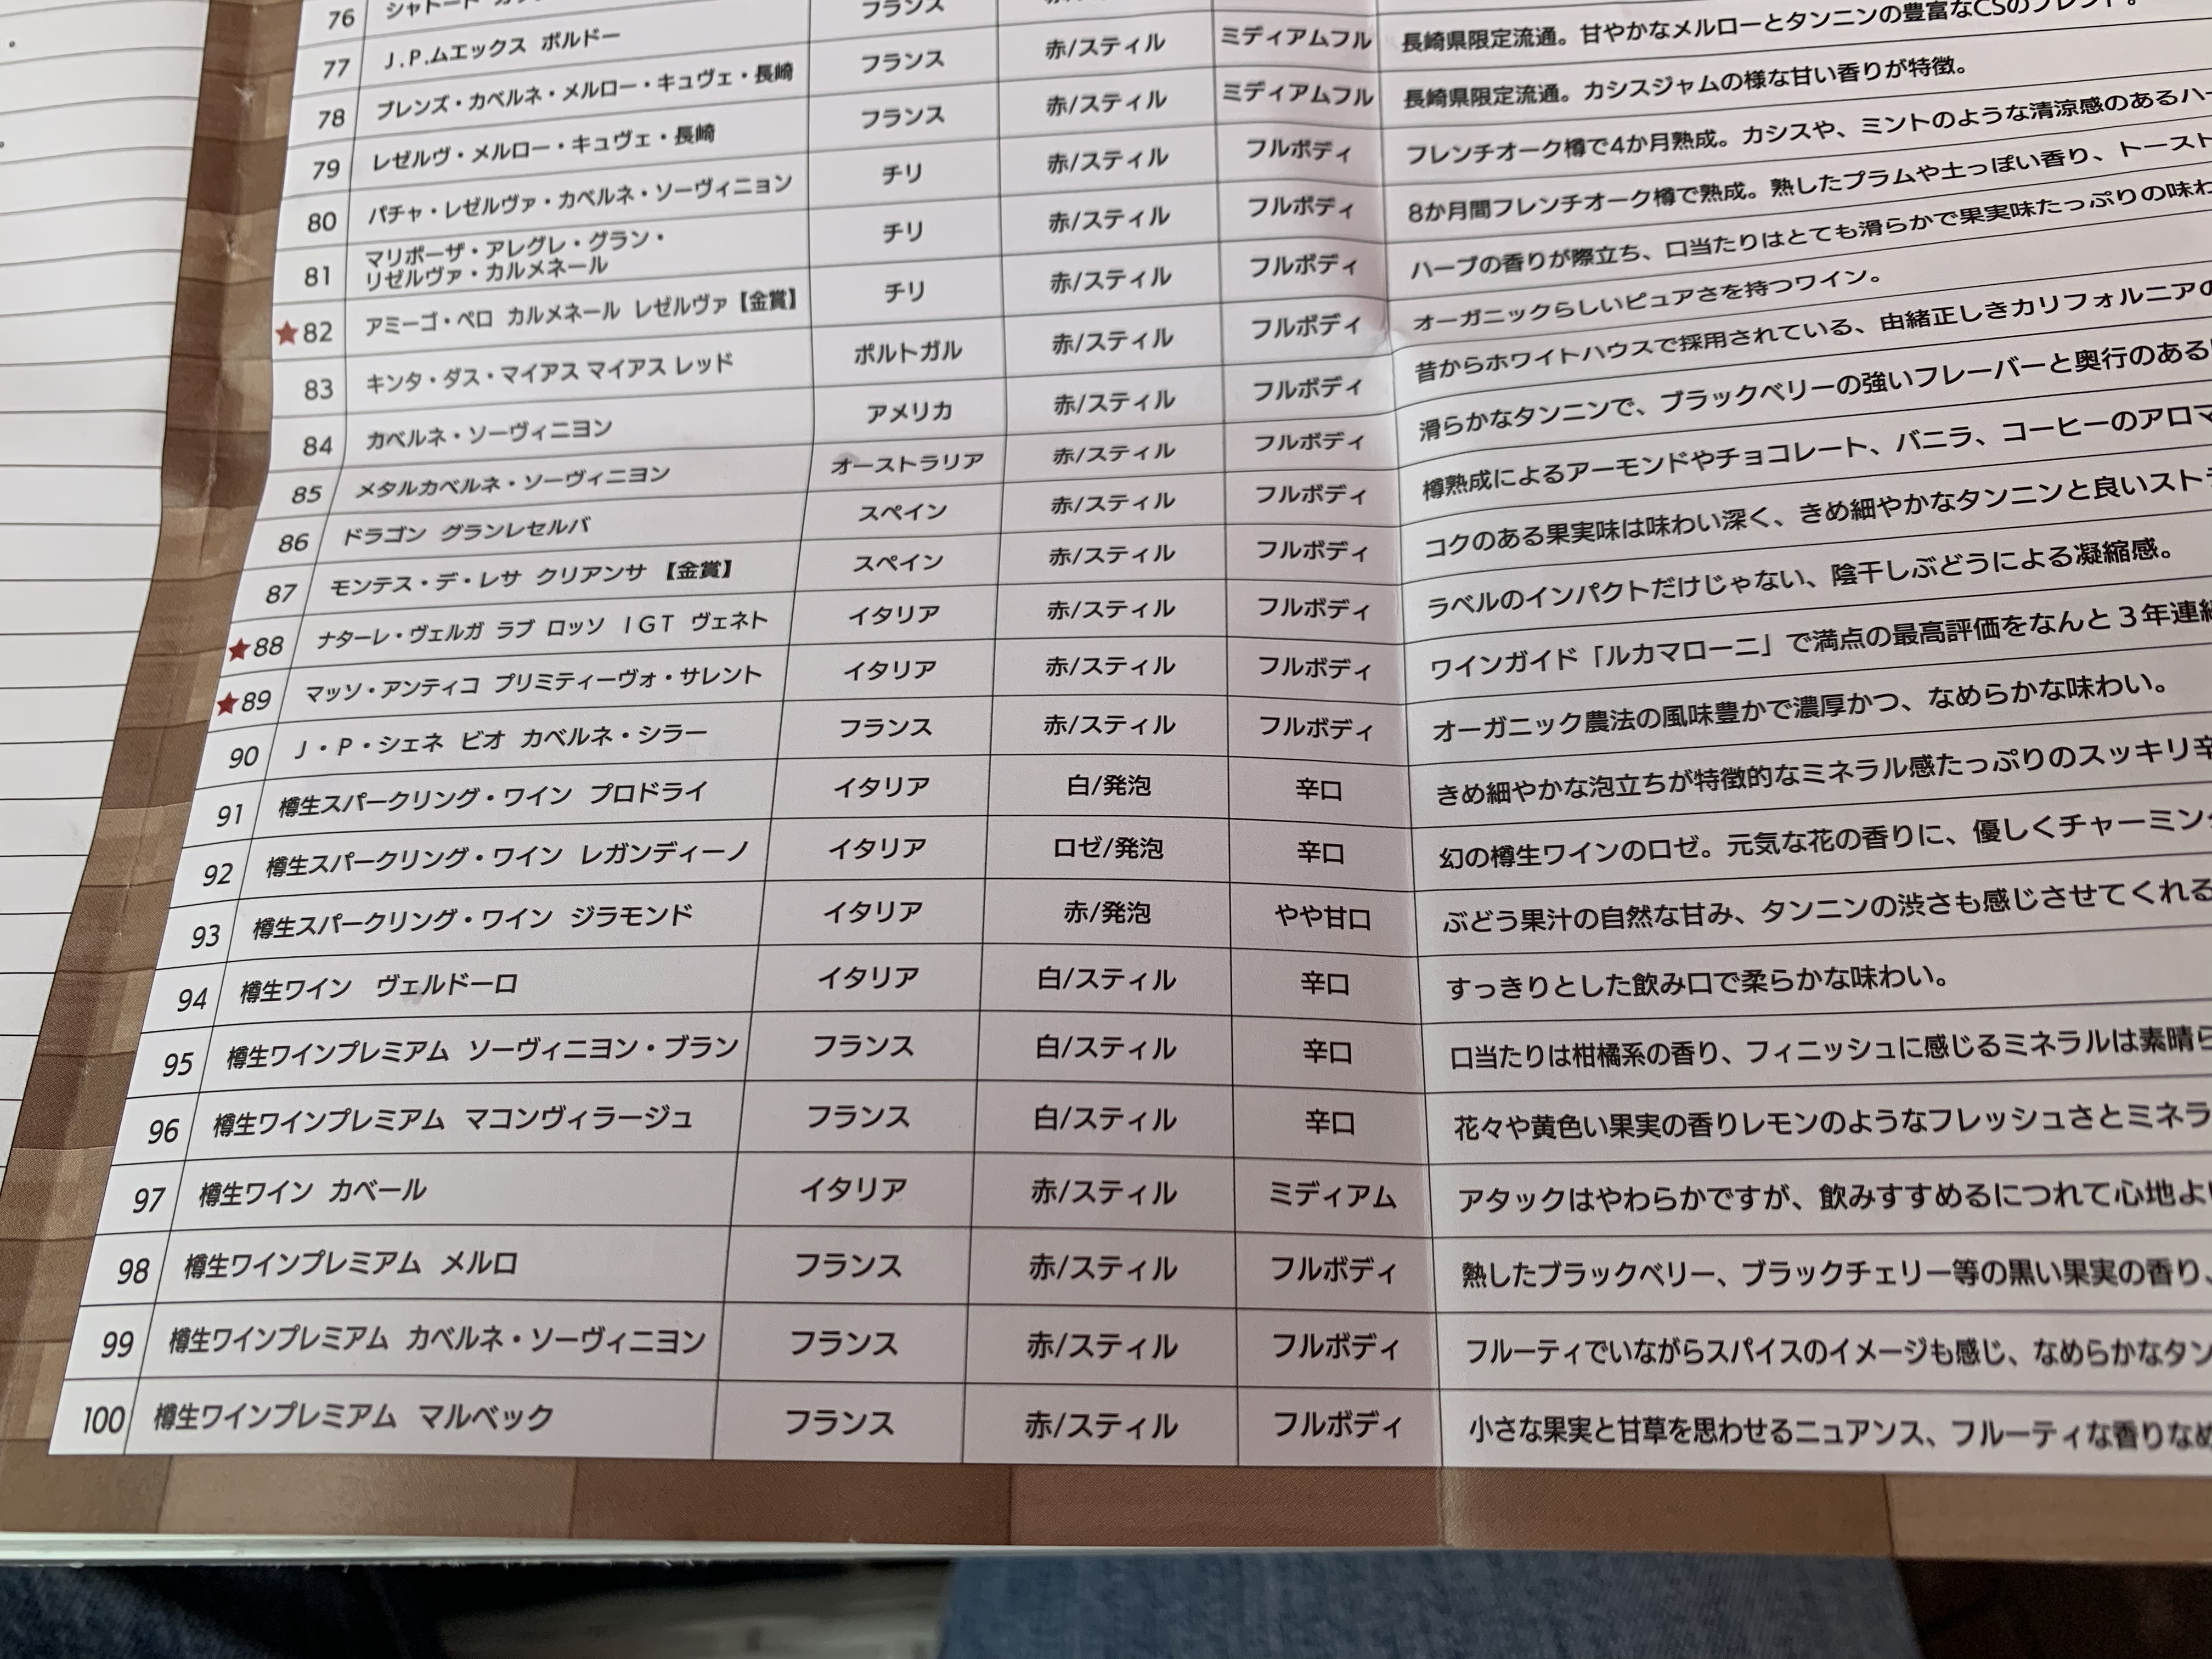 76
77 J.P.ムエックス ボルドー フランス
78 ブレンズ・カベルネ・メルロー・キュヴェ・長崎 フランス 赤/スティル ミディアムフル 長崎県限定流通。甘やかなメルローとタンニンの豊富なCSのブレンド。
79 レゼルヴ・メルロー・キュヴェ・長崎 フランス 赤/スティル ミディアムフル 長崎県限定流通。カシスジャムの様な甘い香りが特徴。
80 パチャ・レゼルヴァ・カベルネ・ソーヴィニョン チリ 赤/スティル フルボディ フレンチオーク樽で4か月熟成。カシスや、ミントのような清涼感のあるハー
81 マリポーザ・アレグレ・グラン・
リゼルヴァ・カルメネール チリ 赤/スティル フルボディ 8か月間フレンチオーク樽で熟成。熟したプラムや土っぽい香り、トースト
★82 アミーゴ・ペロ カルメネール レゼルヴァ【金賞】 チリ 赤/スティル フルボディ ハーブの香りが際立ち、口当たりはとても滑らかで果実味たっぷりの味わ
83 キンタ・ダス・マイアス マイアス レッド ポルトガル 赤/スティル フルボディ オーガニックらしいピュアさを持つワイン。
84 カベルネ・ソーヴィニヨン アメリカ 赤/スティル フルボディ 昔からホワイトハウスで採用されている、由緒正しきカリフォルニアの
85 メタルカベルネ・ソーヴィニヨン オーストラリア 赤/スティル フルボディ 滑らかなタンニンで、ブラックベリーの強いフレーバーと奥行のある
86 ドラゴン グランレセルバ スペイン 赤/スティル フルボディ 樽熟成によるアーモンドやチョコレート、バニラ、コーヒーのアロマ
87 モンテス・デ・レサ クリアンサ 【金賞】 スペイン 赤/スティル フルボディ コクのある果実味は味わい深く、きめ細やかなタンニンと良いスト
★88 ナターレ・ヴェルガ ラブ ロッソ IGT ヴェネト イタリア 赤/スティル フルボディ ラベルのインパクトだけじゃない、陰干しぶどうによる凝縮感。
★89 マッソ・アンティコ プリミティーヴォ・サレント イタリア 赤/スティル フルボディ ワインガイド「ルカマローニ」で満点の最高評価をなんと3年連続
90 J・P・シェネ ビオ カベルネ・シラー フランス 赤/スティル フルボディ オーガニック農法の風味豊かで濃厚かつ、なめらかな味わい。
91 樽生スパークリング・ワイン プロドライ イタリア 白/発泡 辛口 きめ細やかな泡立ちが特徴的なミネラル感たっぷりのスッキリ辛
92 樽生スパークリング・ワイン レガンディーノ イタリア ロゼ/発泡 辛口 幻の樽生ワインのロゼ。元気な花の香りに、優しくチャーミン
93 樽生スパークリング・ワイン ジラモンド イタリア 赤/発泡 やや甘口 ぶどう果汁の自然な甘み、タンニンの渋さも感じさせてくれる
94 樽生ワイン ヴェルドーロ イタリア 白/スティル 辛口 すっきりとした飲み口で柔らかな味わい。
95 樽生ワインプレミアム ソーヴィニヨン・ブラン フランス 白/スティル 辛口 口当たりは柑橘系の香り、フィニッシュに感じるミネラルは素晴ら
96 樽生ワインプレミアム マコンヴィラージュ フランス 白/スティル 辛口 花々や黄色い果実の香りレモンのようなフレッシュさとミネラ
97 樽生ワイン カベール イタリア 赤/スティル ミディアム アタックはやわらかですが、飲みすすめるにつれて心地よ
98 樽生ワインプレミアム メルロ フランス 赤/スティル フルボディ 熟したブラックベリー、ブラックチェリー等の黒い果実の香り、
99 樽生ワインプレミアム カベルネ・ソーヴィニヨン フランス 赤/スティル フルボディ フルーティでいながらスパイスのイメージも感じ、なめらかなタン
100 樽生ワインプレミアム マルベック フランス 赤/スティル フルボディ 小さな果実と甘草を思わせるニュアンス、フルーティな香りなめ